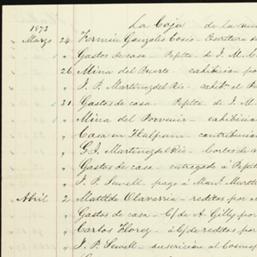 La Caja de la
1873
Marzo 24 Fermin Gonzalez Cosio Escritura d
" Gastos de casa Pepita de J. M. C
" 26 Mina del Fuerte exhibicion po
" J. P. Martinez del Rio
" 31 Gastos de casa Pepita de J. M
" Mina del Porvenir exhibicion
" Casa en Tlalpam contribucion
" G. I. Martinez del Rio Cortes de
" Gastos de casa entregado a Pepit
" J. P. Sewell pago á Man. Morett
Abril 2 Matilde Olavarria reditos por el
" Gastos de casa C/ de A. Gilly por
" Carlos Florez i/g de reditos por
" J. P. Sewell suscricion al